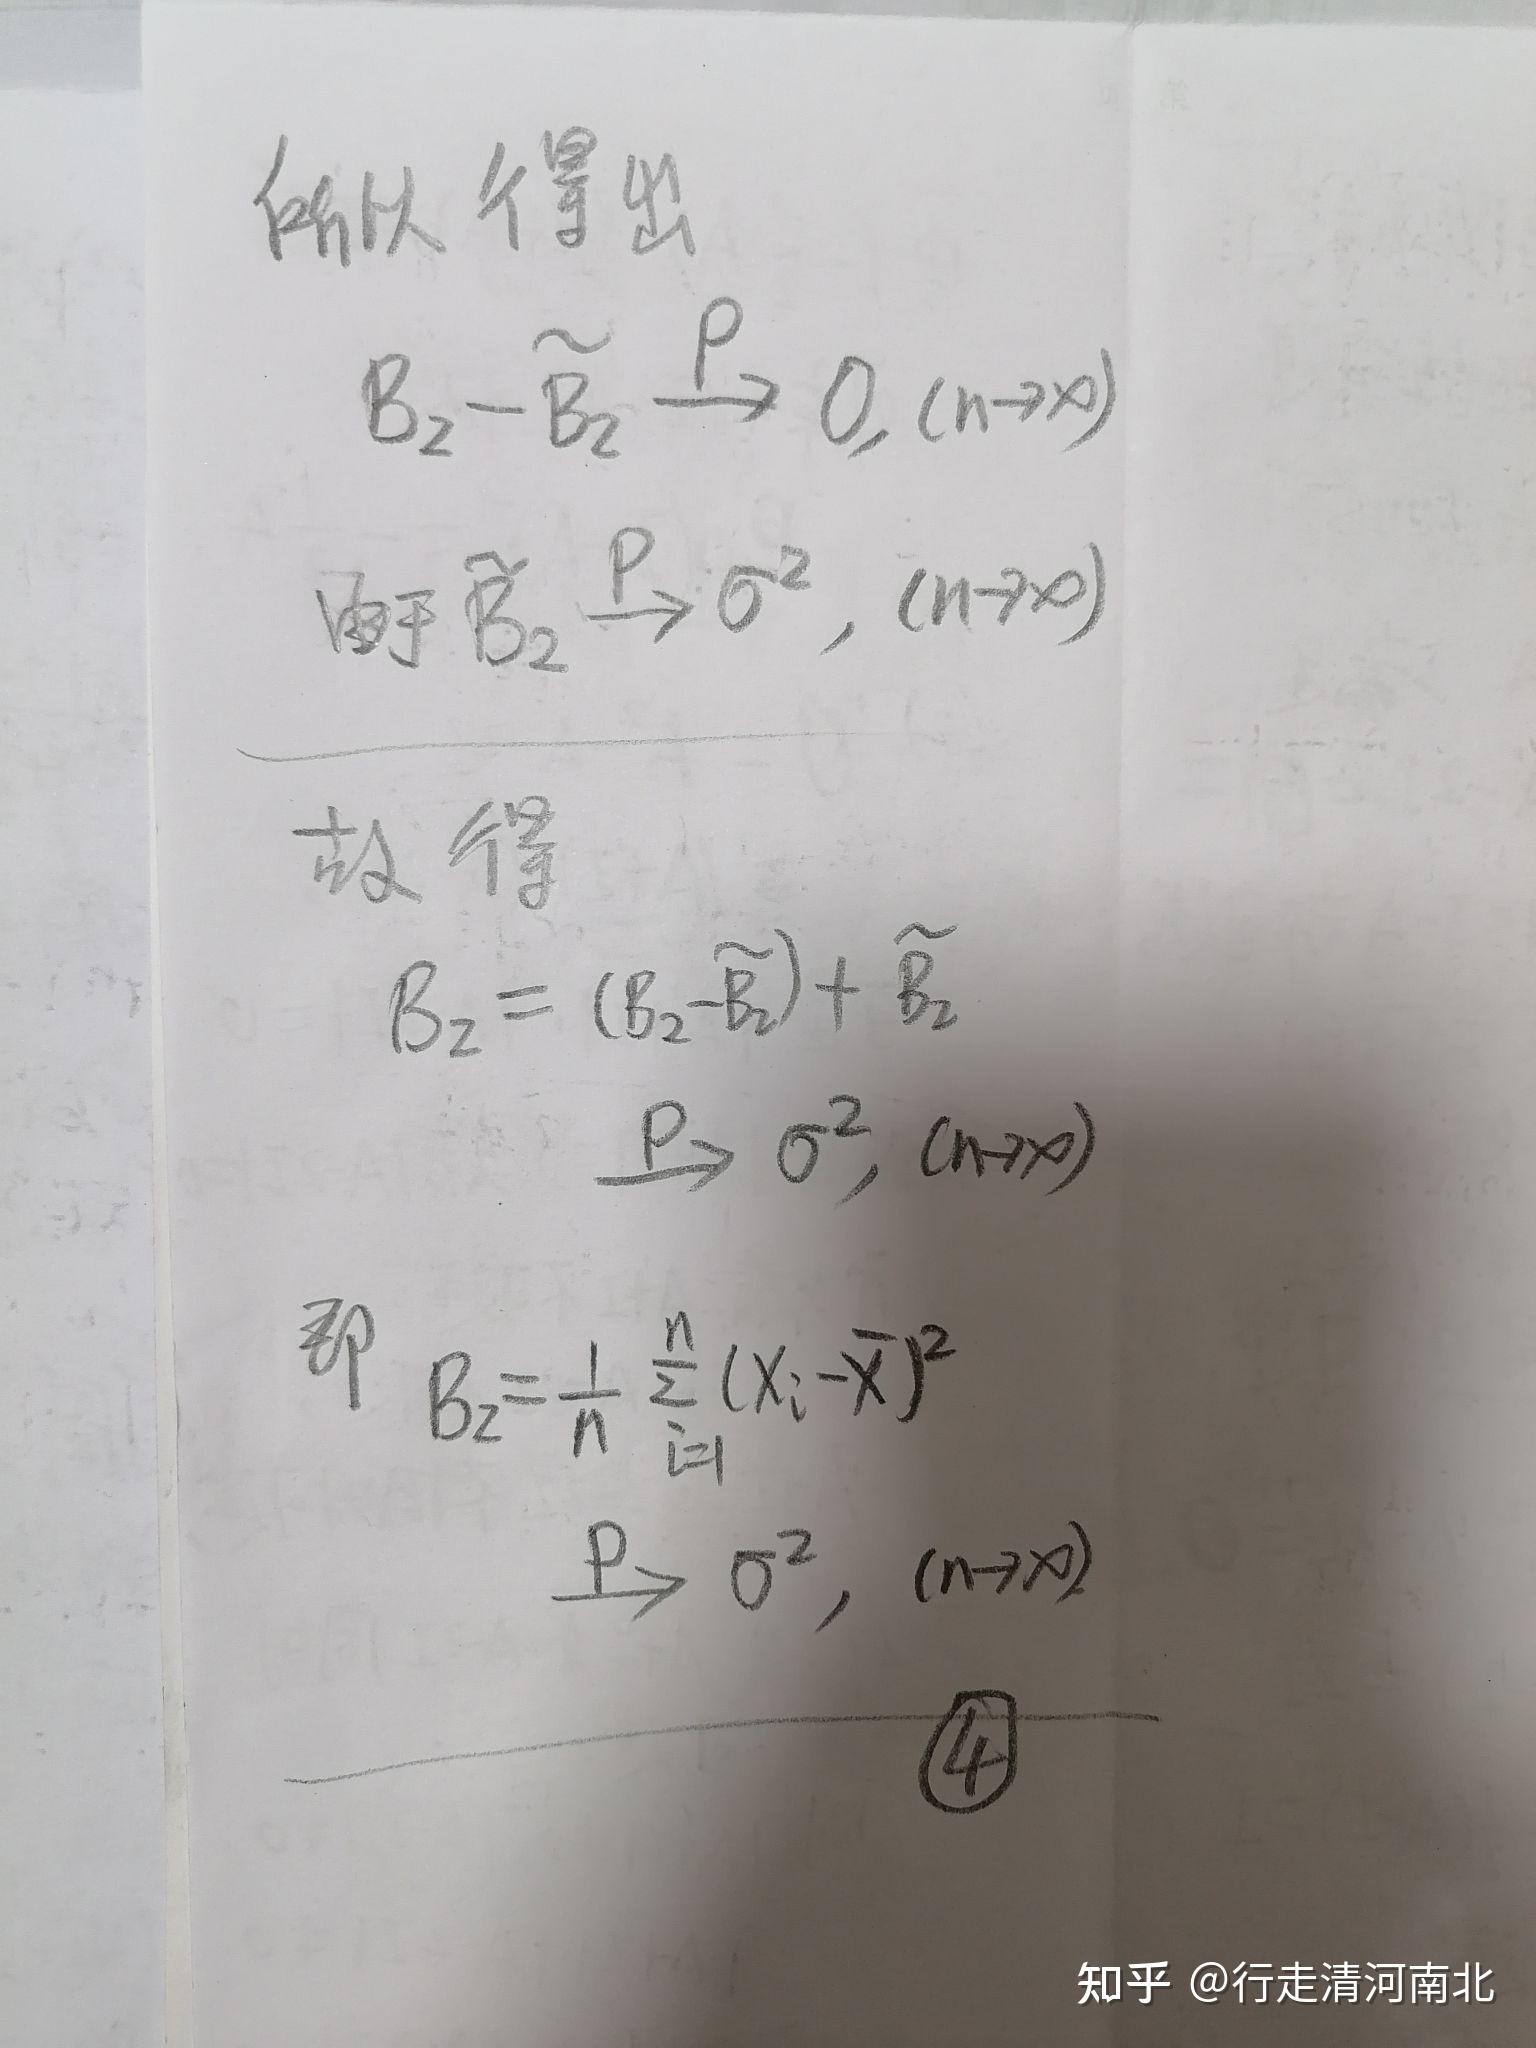 所以得出
B₂ - B̃₂ —P→ 0, (n→∞)
由于 B̃₂ —P→ σ², (n→∞)
故得
B₂ = (B₂ - B̃₂) + B̃₂
—P→ σ², (n→∞)
即 B₂ = 1/n ∑ᵢ₌₁ⁿ (Xᵢ - X̄)²
—P→ σ², (n→∞)
④
知乎 @行走清河南北